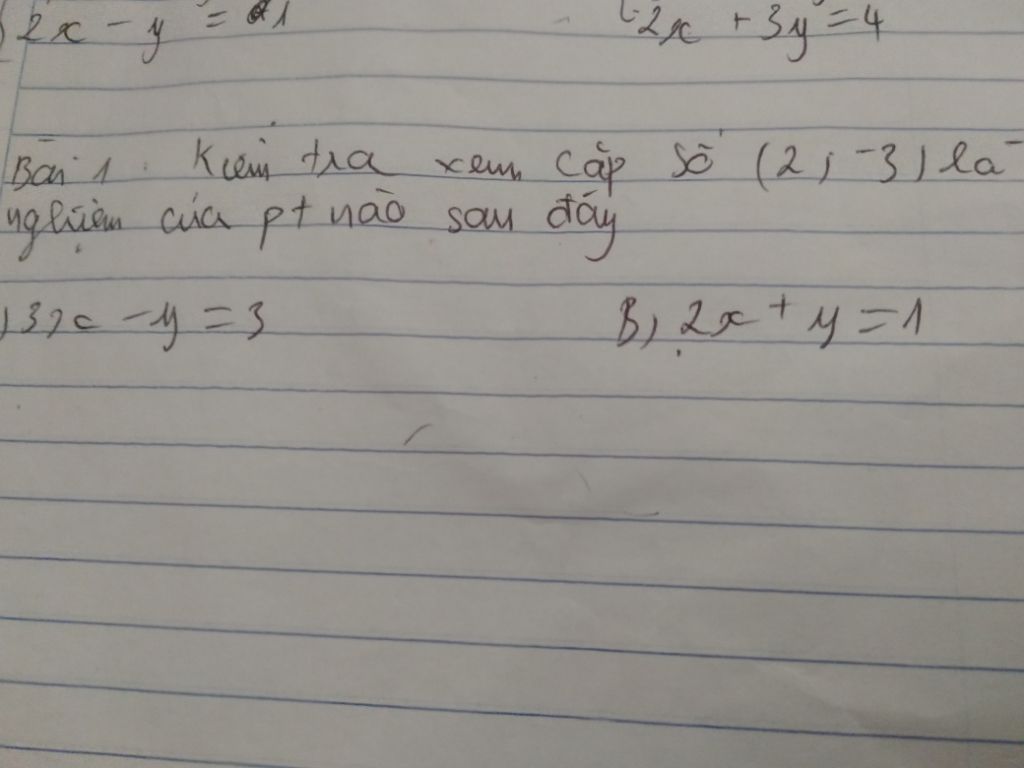 2x - y = 1
2x + 3y = 4
Bài 1: Kiểm tra xem cặp số (2; -3) là
nghiệm của pt nào sau đây
) 3x - y = 3
B) 2x + y = 1